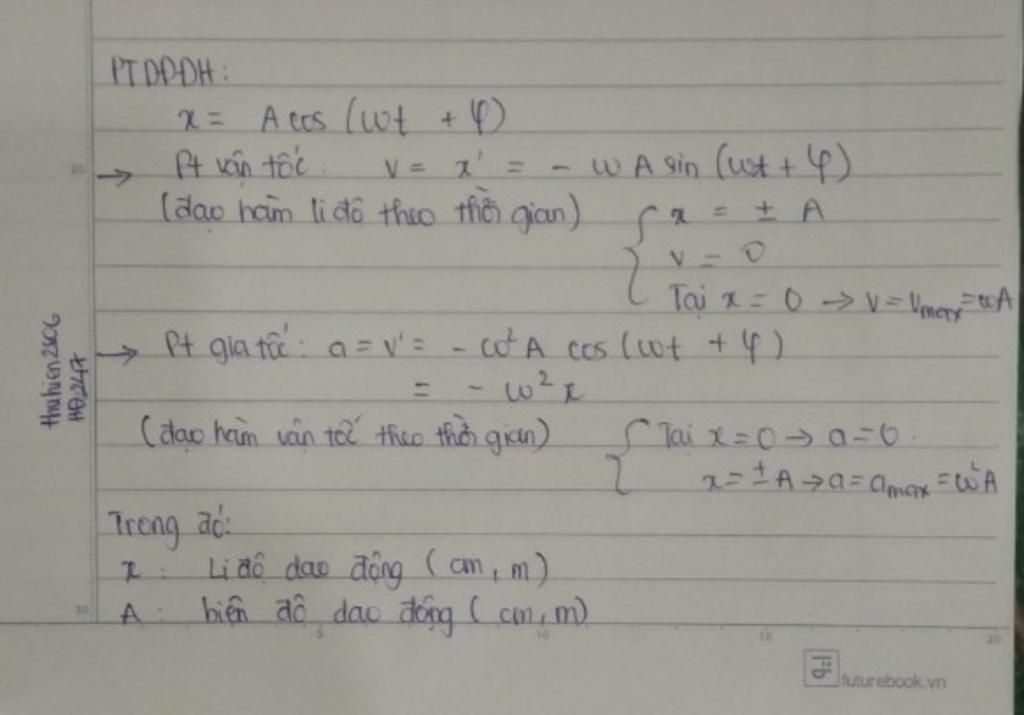 PTDĐĐH:
x = A cos (ωt + φ)
→ Pt vận tốc: v = x' = - ωA sin (ωt + φ)
(đạo hàm li độ theo thời gian) { x = ± A
v = 0
Tại x = 0 → v = vmax = ωA
→ Pt gia tốc: a = v' = - ω²A cos (ωt + φ)
= - ω²x
(đạo hàm vận tốc theo thời gian) { Tại x = 0 → a = 0.
x = ± A → a = amax = ω²A
Trong đó:
x: Li độ dao động (cm, m)
A: biên độ dao động (cm, m)
thuhien2306
HĐ247
20
30
5
10
15
20
futurebook.vn